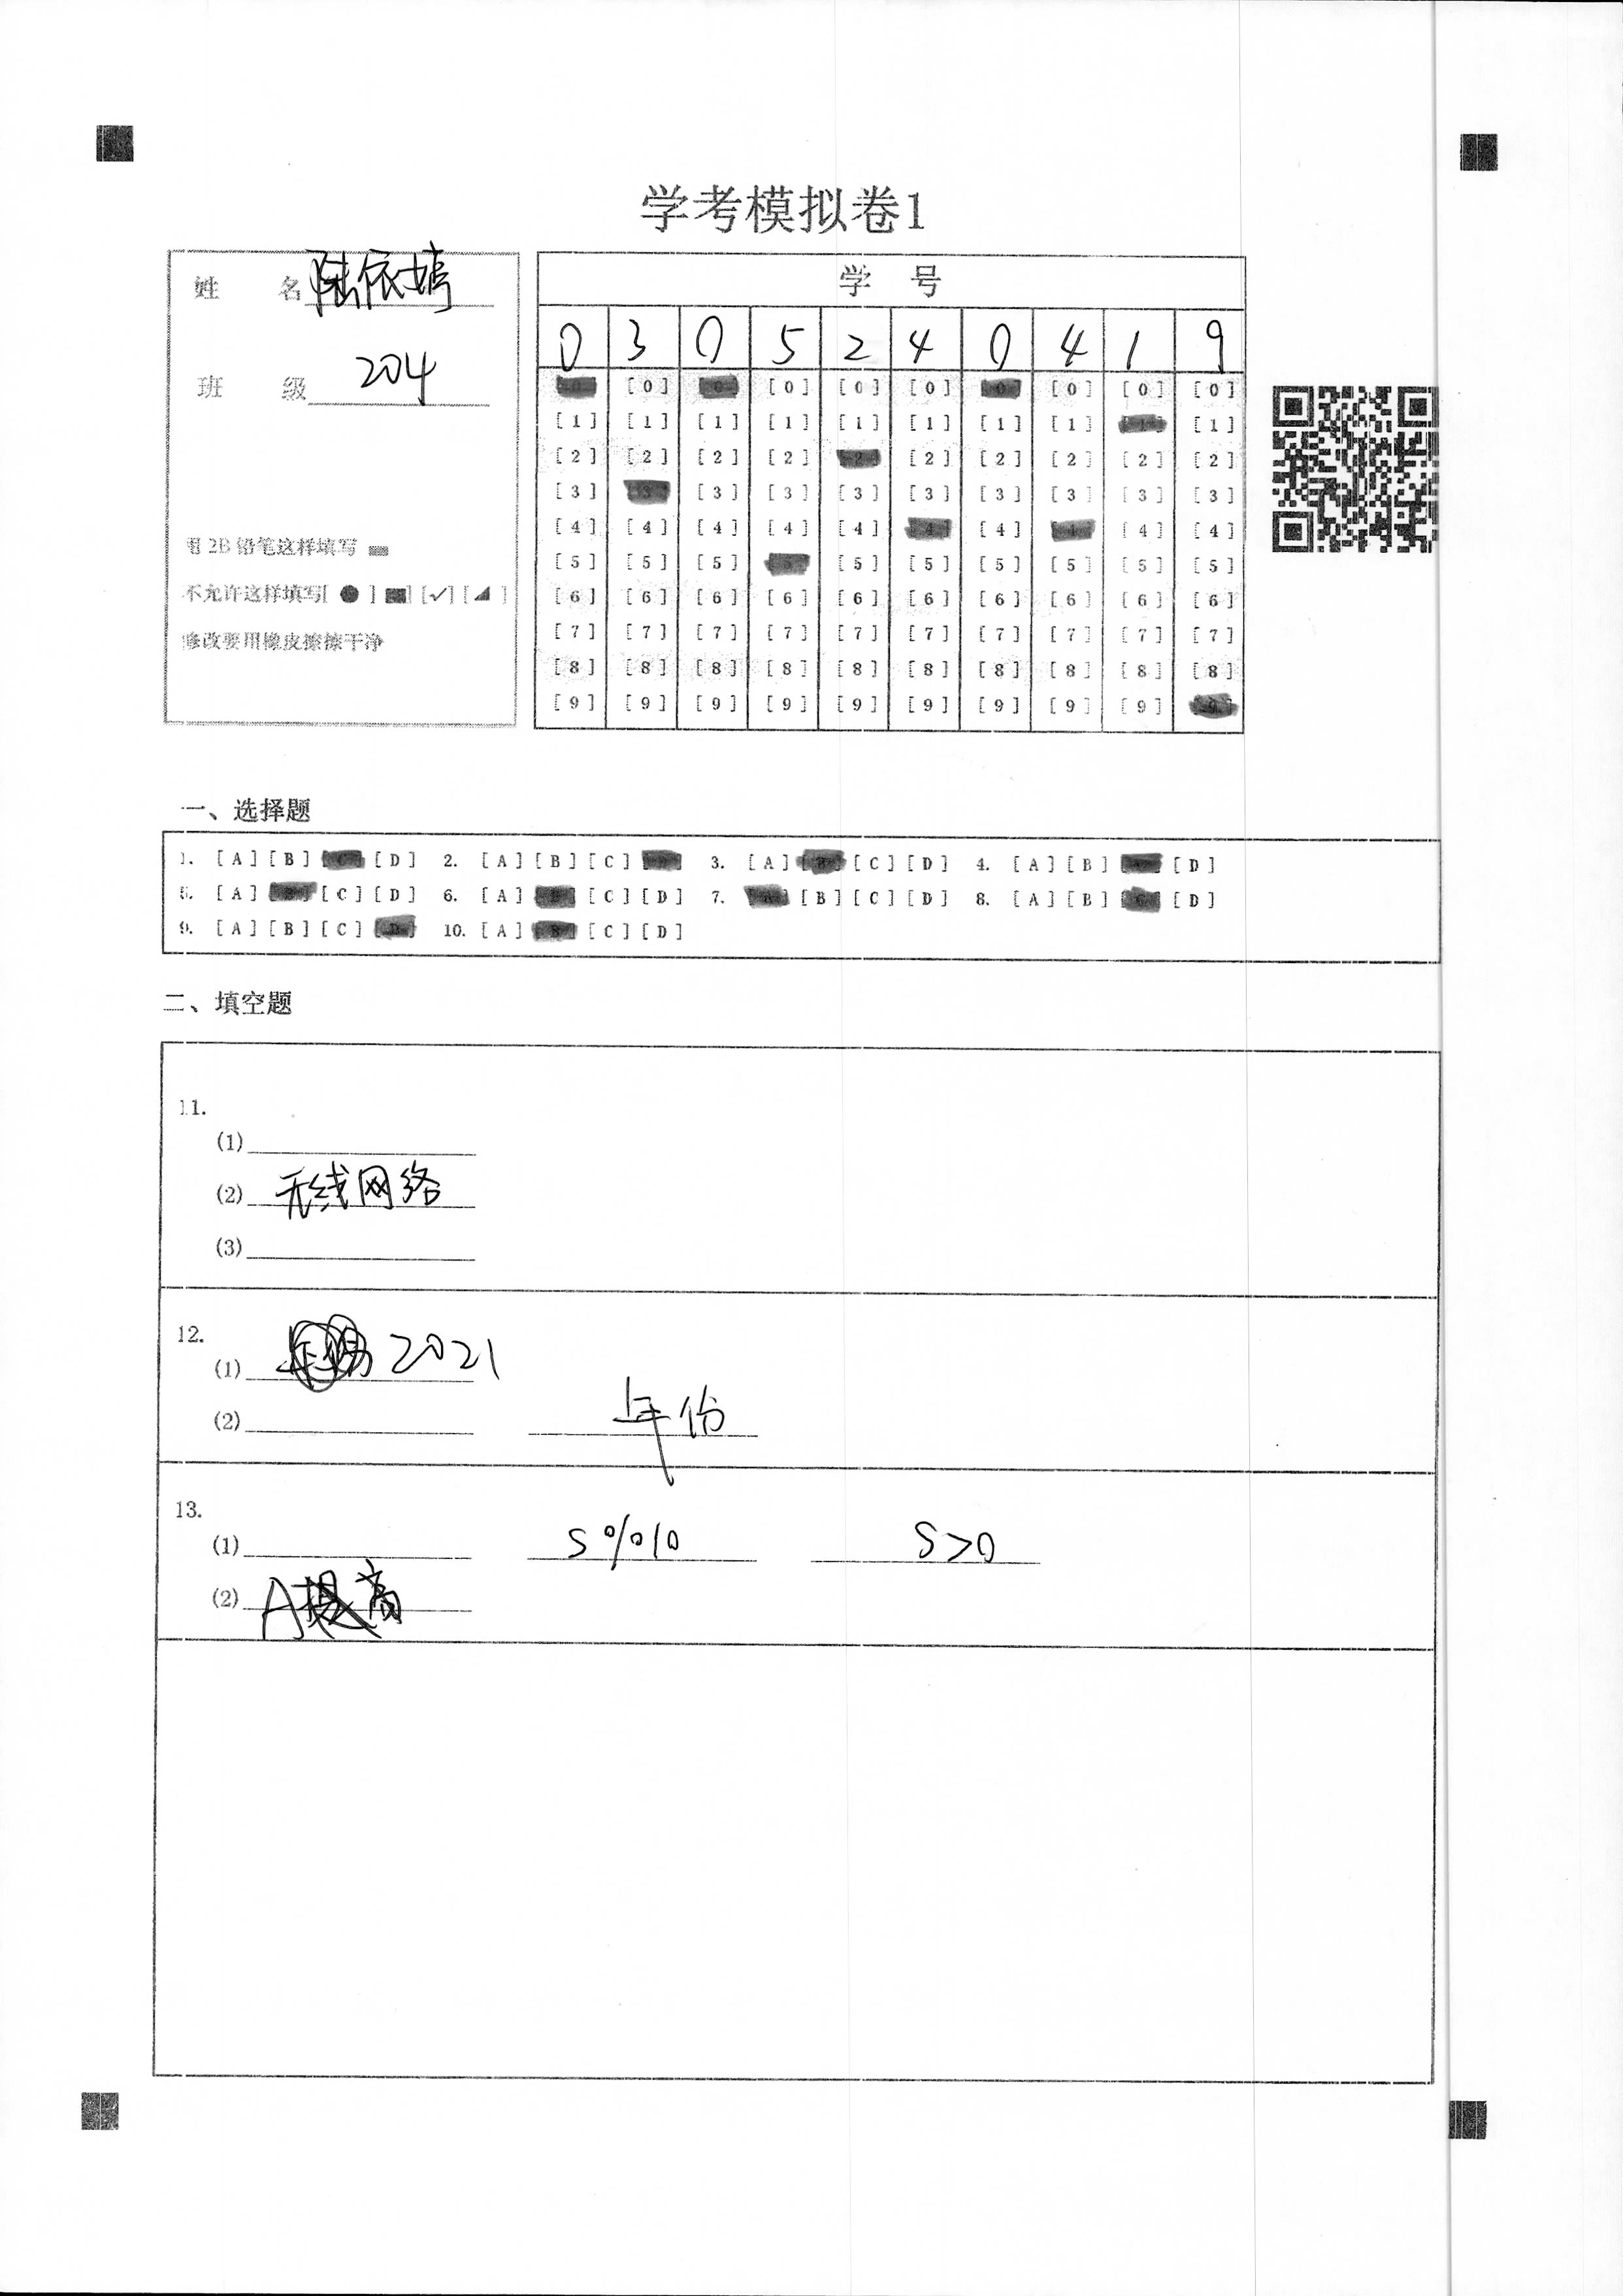 学考模拟卷1
姓 名 陆依婷
班 级 204
用 2B 铅笔这样填写
不允许这样填写[ ● ] [✓] [ ]
修改要用橡皮擦擦干净
学 号
0 3 0 5 2 4 0 4 1 9
[0] [0] [0] [0] [0] [0] [0] [0] [0] [0]
[1] [1] [1] [1] [1] [1] [1] [1] [1] [1]
[2] [2] [2] [2] [2] [2] [2] [2] [2] [2]
[3] [3] [3] [3] [3] [3] [3] [3] [3] [3]
[4] [4] [4] [4] [4] [4] [4] [4] [4] [4]
[5] [5] [5] [5] [5] [5] [5] [5] [5] [5]
[6] [6] [6] [6] [6] [6] [6] [6] [6] [6]
[7] [7] [7] [7] [7] [7] [7] [7] [7] [7]
[8] [8] [8] [8] [8] [8] [8] [8] [8] [8]
[9] [9] [9] [9] [9] [9] [9] [9] [9] [9]
一、选择题
1. [A][B][C][D] 2. [A][B][C][D] 3. [A][B][C][D] 4. [A][B][C][D]
5. [A][B][C][D] 6. [A][B][C][D] 7. [A][B][C][D] 8. [A][B][C][D]
9. [A][B][C][D] 10. [A][B][C][D]
二、填空题
11.
(1)
(2) 无线网络
(3)
12.
(1) 2021
(2) 年份
13.
(1) s%10 S>0
(2) A提高